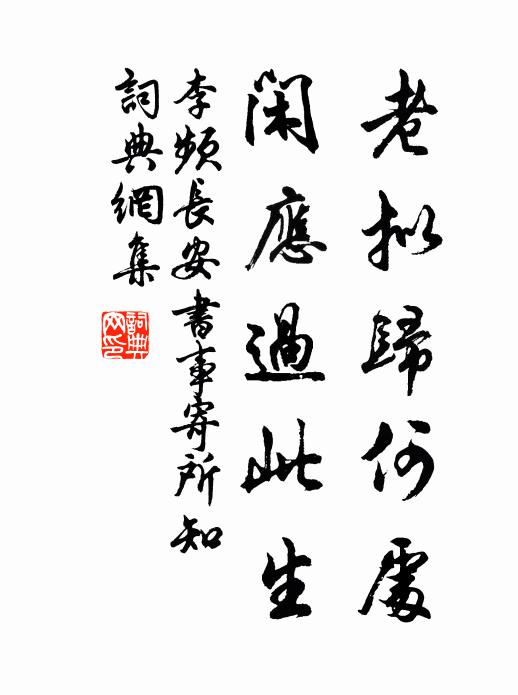 老拟歸何處
閑應過此生
李頻長安書事寄所知
詞典網集
詞典网印